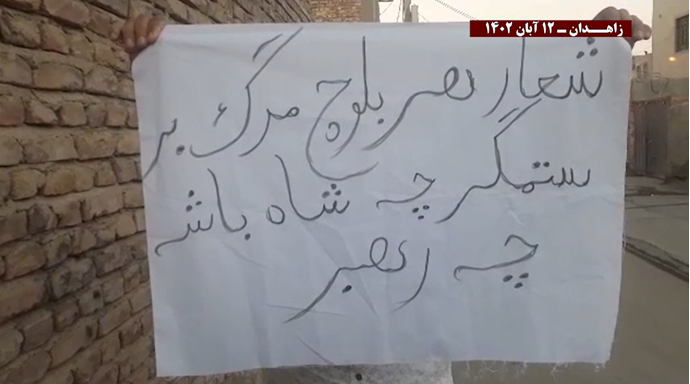 زاهدان ـ ۱۲ آبان ۱۴۰۲
شعار هر بلوچ مرگ بر
ستمگر چه شاه باشه
چه رهبر